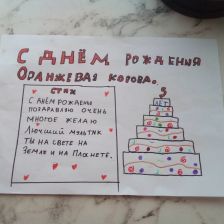 С ДНЁМ РОЖДЕНИЯ
ОРАНЖЕВАЯ КОРОВА.
СТИХ
С ДНЁМ РОЖДЕНЬЯ
ПОЗДРАВЛЯЮ ОЧЕНЬ
МНОГОЕ ЖЕЛАЮ
ЛУЧШИЙ МУЛЬТИК
ТЫ НА СВЕТЕ НА
ЗЕМЛЕ И НА ПЛАНЕТЕ.
5
ЛЕТ